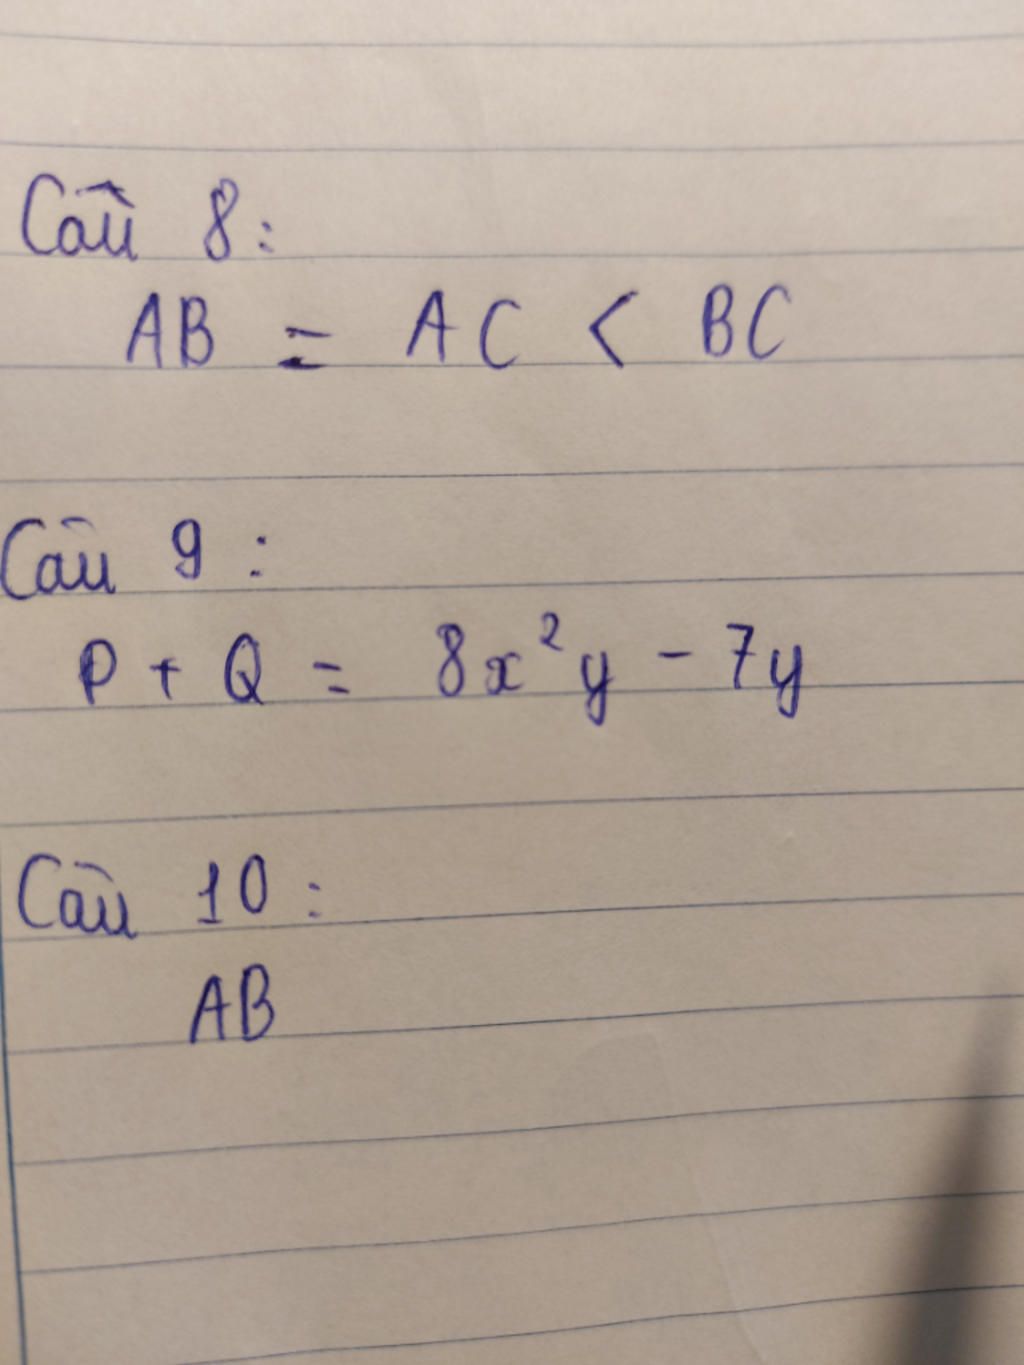 Câu 8:
AB = AC < BC
Câu 9:
P + Q = 8x²y - 7y
Câu 10:
AB